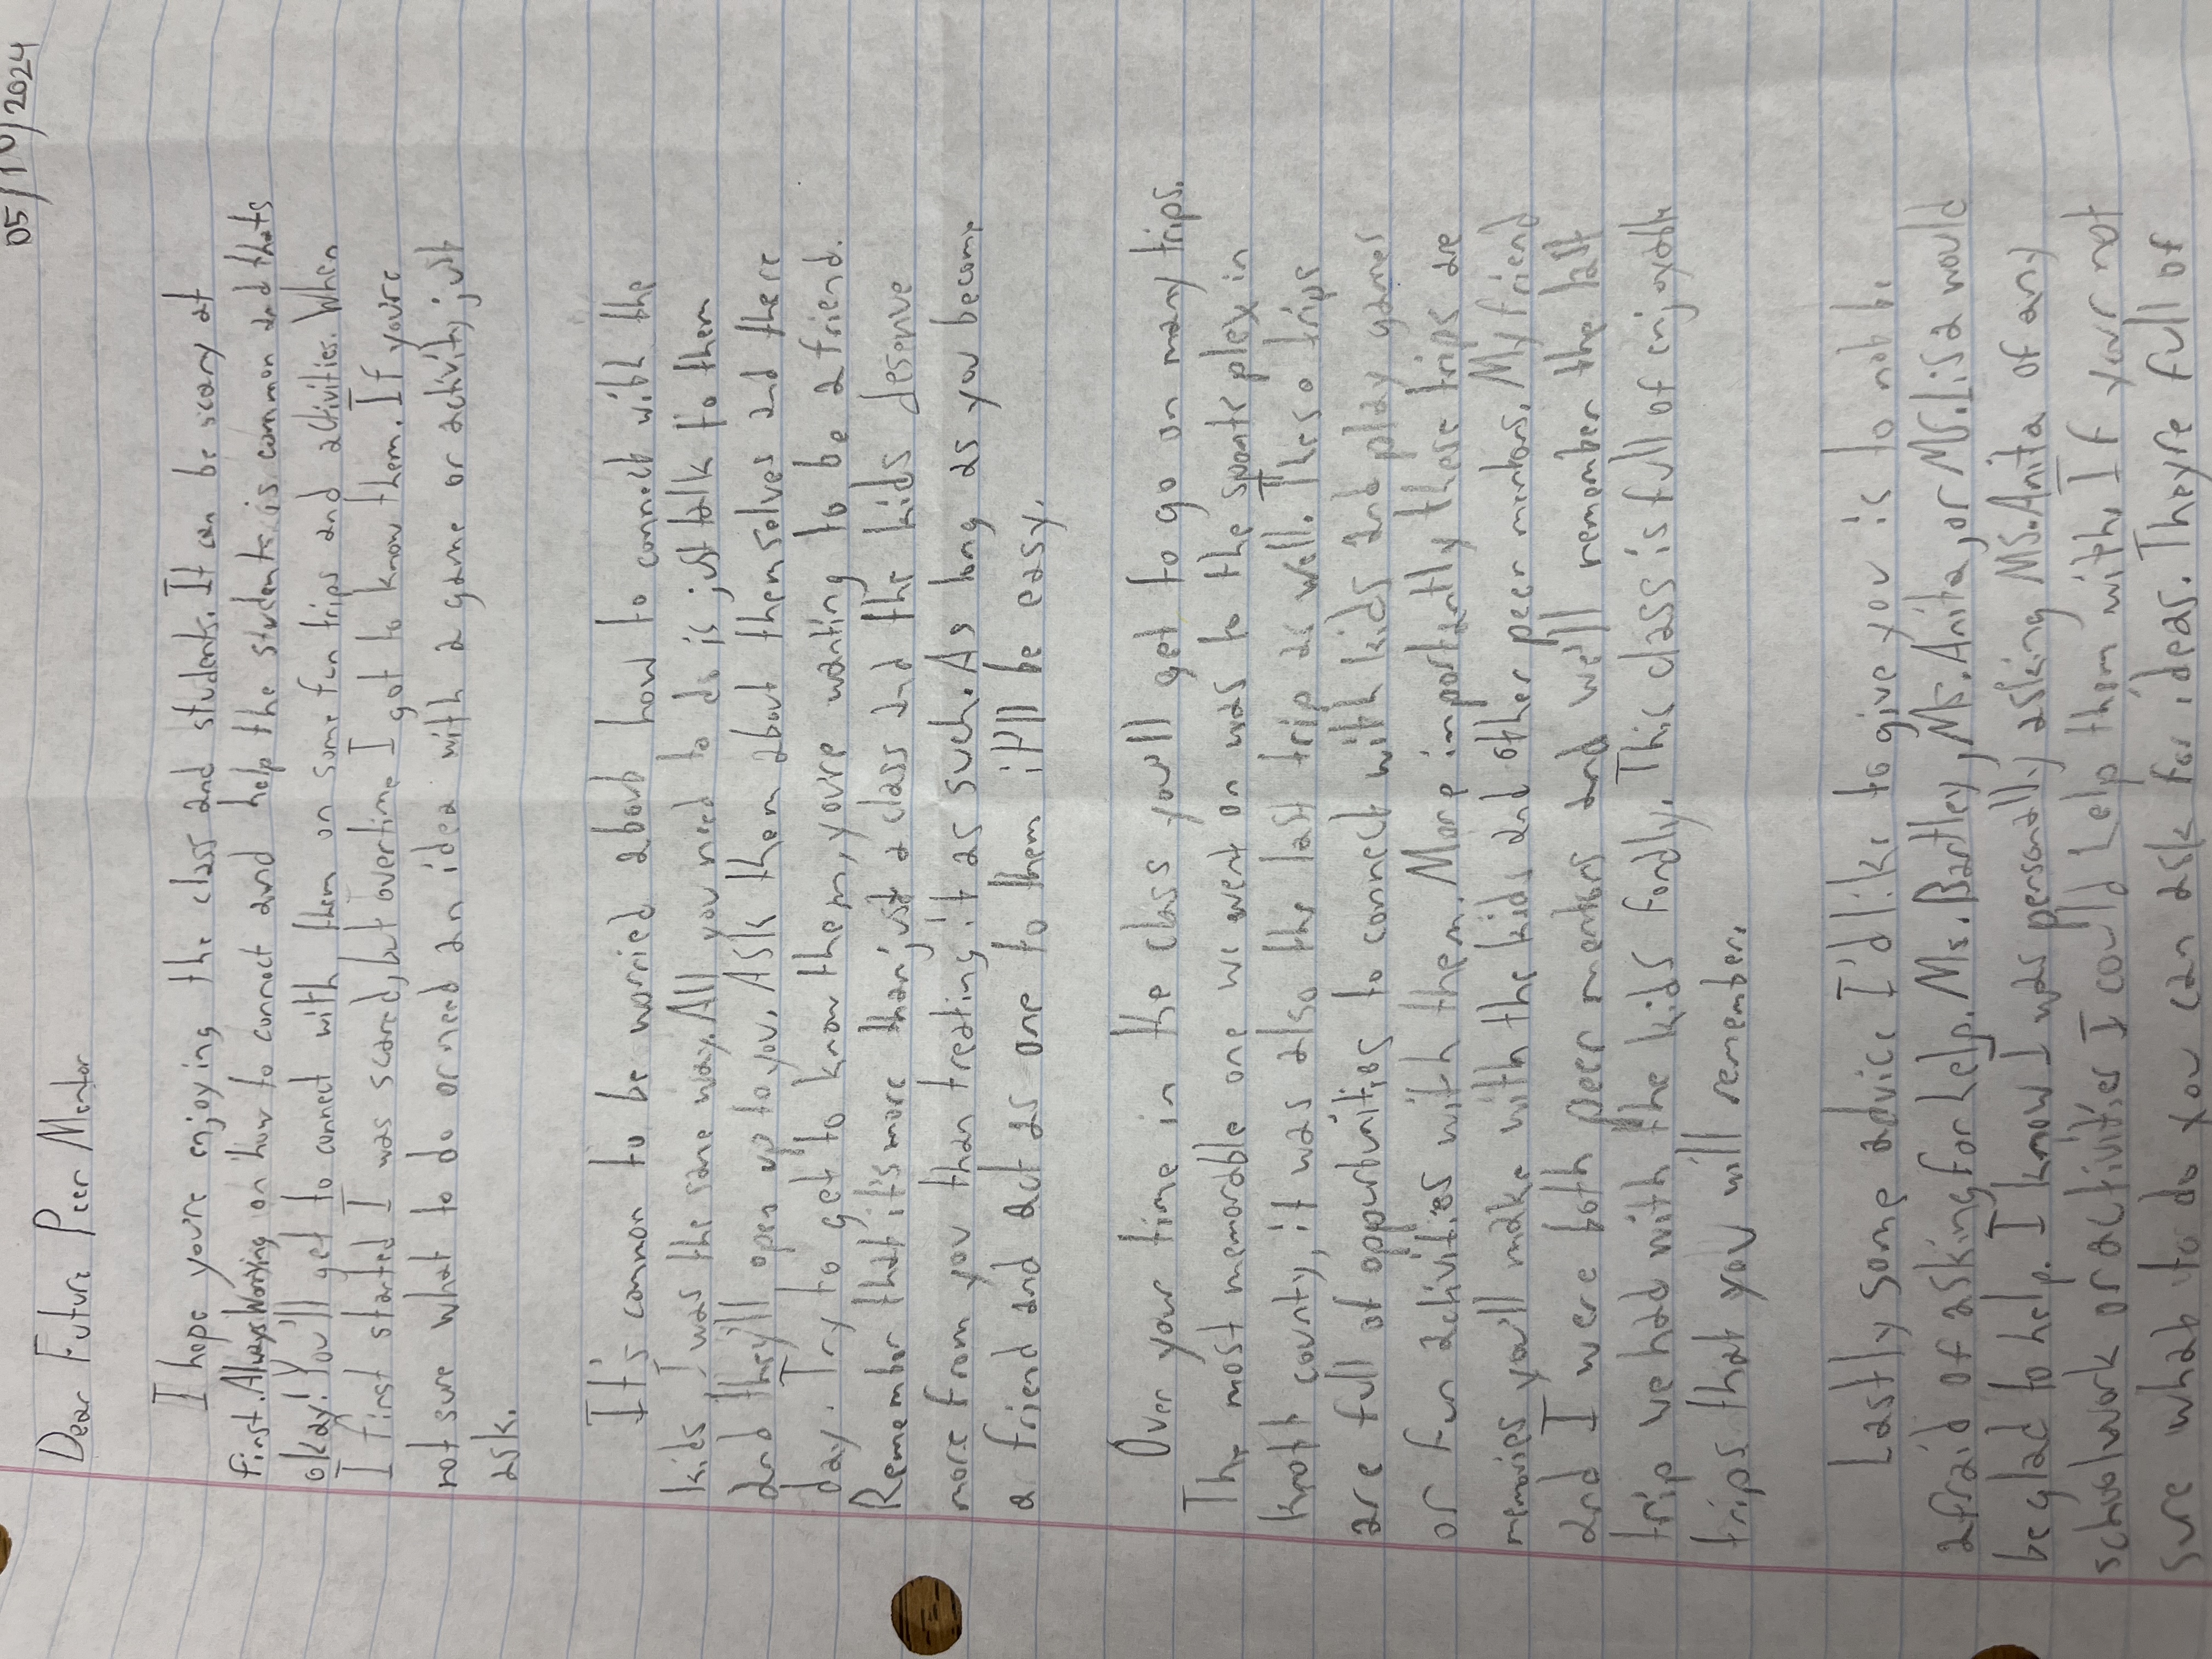 05/10/2024
Dear Future Peer Mentor
I hope you're enjoying the class and students. It can be scary at
first. Always worrying on how to connect and help the students is common and thats
okay! You'll get to connect with them on some fun trips and activities. When
I first started I was scared, but overtime I got to know them. If you're
not sure what to do or need an idea with a game or activity just
ask.
It's common to be worried about how to connect with the
kids I was the same way. All you need to do is just talk to them
and they'll open up to you. Ask them about themselves and there
day. Try to get to know them, you're wanting to be a friend.
Remember that it's more than just a class and the kids deserve
more from you than treating it as such. As long as you become
a friend and act as one to them it'll be easy.
Over your time in the class you'll get to go on many trips.
The most memorable one we went on was to the sports plex in
knott county, it was also the last trip as well. These trips
are full of oppurtunities to connect with kids and play games
or fun activities with them. More importantly these trips are
memories you'll make with the kids and other peer mentors. My friend
and I were both peer mentors and we'll remember the last
trip we had with the kids fondly. This class is full of enjoyable
trips that you will remember.
Lastly some advice I'd like to give you is to not be
afraid of asking for help. Ms. Bartley, Ms. Anita, or Ms. Lisa would
be glad to help. I know I was personally asking Ms. Anita of any
schoolwork or activities I could help them with. If your not
sure what to do you can ask for ideas. They're full of